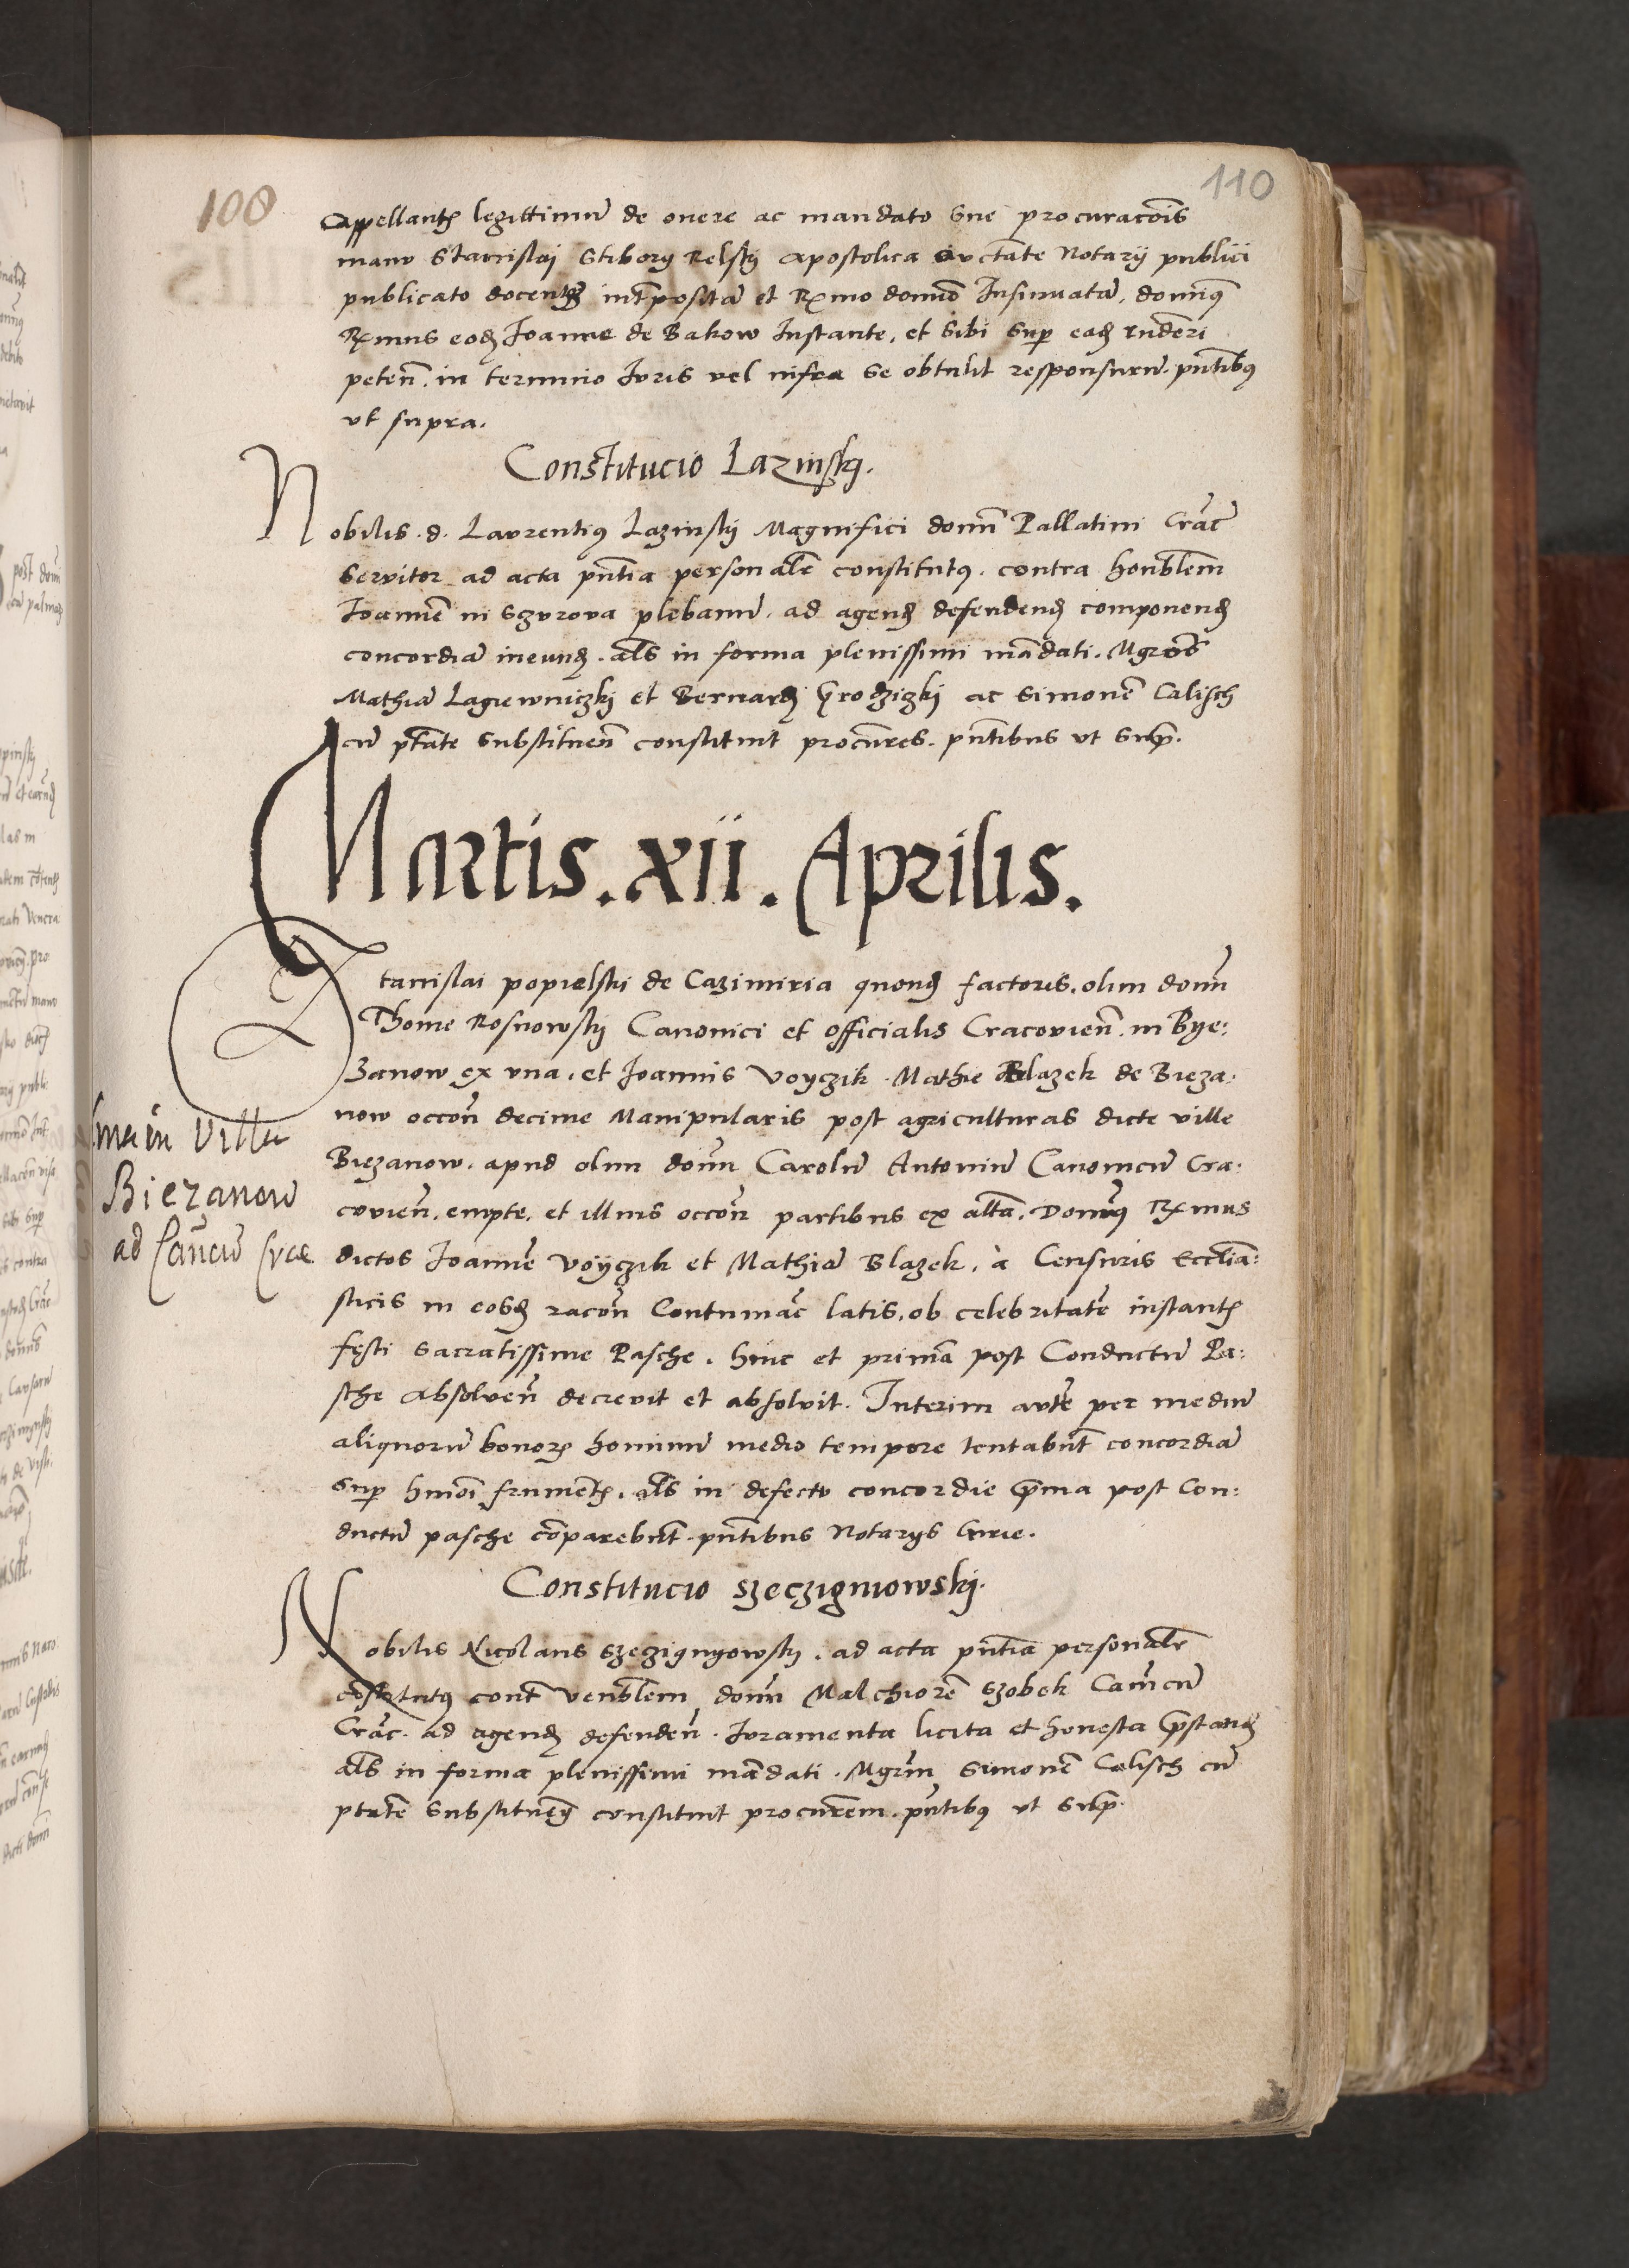 108
110
Appellantis legittimum de onere ac mandato sue procuracois
manu Stanislai Stibory Relsky Apostolica auctate Notarij publici
publicato docentem intpositã et Rmo domino Insinuatã, domusq
Rmus eodem Joanne de Bakow Instante, et sibi Sup eadem rnderi
peten. in termino Juris vel infra se obtulit responsurũ. pntibus
vt supra.
Constitucio Lazinsky.
Nobilis. d. Laurentius Lazinsky Magnifici domini Pallatini Crac
servitor ad acta pntia personalr constitutus. contra honblem
Joannem in Szurova plebanum. ad agend defendend componend
concordiã ineund. als in forma plenissimi mãdati. Mgros
Mathiã Lagiewniczkj et Bernardũ Grodziczkj ac Simonẽ Calisch
cũ ptate substituen constituit procures. pntibus vt Sup.
Martis. xii. Aprilis.
Stanislai popielski de Cazimiria quond factoris. olim domini
Thome Rosnowsky Canonici et officialis Cracovien. in Bye:
zanow ex vna. et Joannis Voyczik. Mathie Blazek de Bieza:
now occon decime Manipularis post agriculturas dicte ville
Biezanow. apud olim domin Carolũ Antoniũ Canonicũ Cra:
covien. empte. et illius occon partibus ex altã. Dominus Rmus
dictos Joannẽ Voyczik et Mathiã Blazek. à Censuris Ecclia:
sticis in eosd racon Contumac latis. ob celebritatẽ instantis
festi Sacratissime Pasche. hinc et primã post Conductũ Pa:
sche absolven decrevit et absolvit. Interim autẽ per mediũ
aliquorũ bonorum hominũ medio tempore tentabunt concordiã
Sup hmoi frumentis. als in defectu concordie prima post Con:
ductũ pasche cõparebunt. pntibus Notarys Curie.
in Villa
Biezanow
ad Sanctã Cruc
Constitucio Szeczigniowskj.
Nobilis Nicolaus Szeczignyowsky. ad acta pntia personalr
cõstitutus cont venblem domin Malchiorẽ Szobek Canõicũ
Crac. ad agend defenden. Juramenta licita et honesta prstand
als in forma plenissimi mãdati. Mgrum Simonẽ Calisch cũ
ptate substituend constituit procurem. pntibus vt Sup.